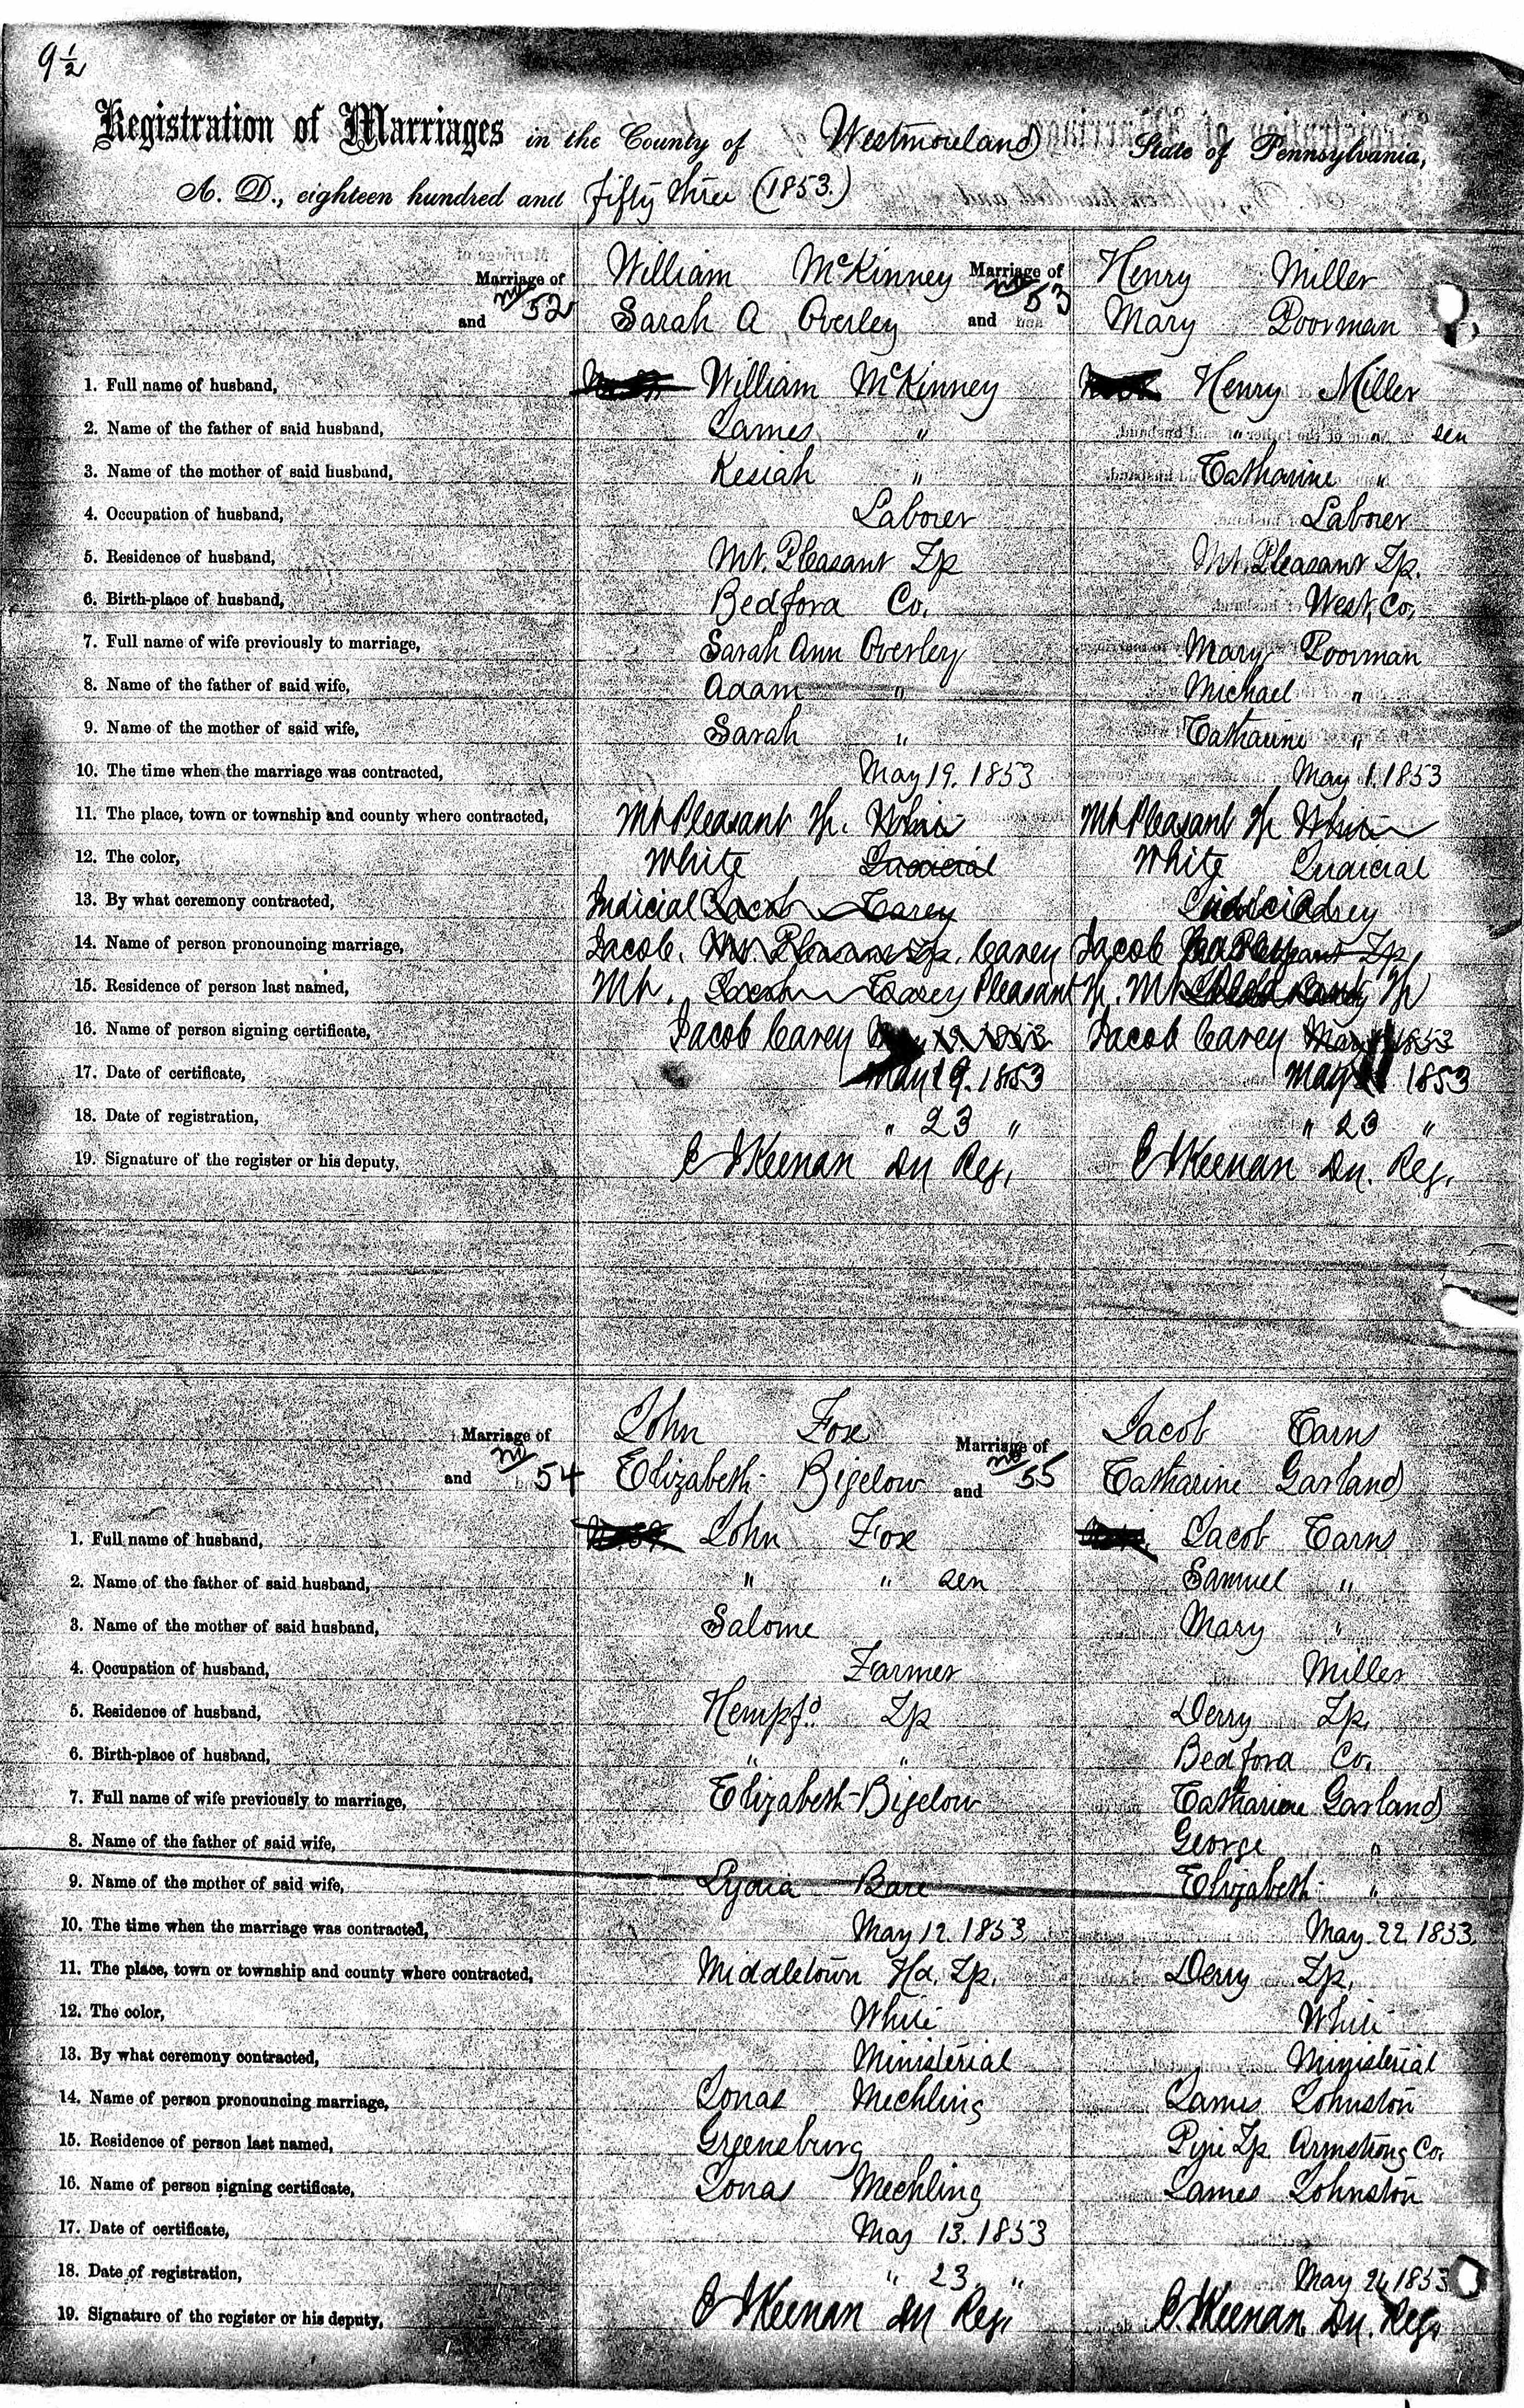 9 1/2
Registration of Marriages in the County of Westmoreland State of Pennsylvania,
A. D., eighteen hundred and fifty three (1853.)
Marriage of William McKinney Marriage of Henry Miller
No 52 No 53
and Sarah A Overley and Mary Poorman
1. Full name of husband, William McKinney Henry Miller
2. Name of the father of said husband, James " " " sen
3. Name of the mother of said husband, Kesiah " Catharine "
4. Occupation of husband, Laborer Laborer
5. Residence of husband, Mt. Pleasant Tp Mt. Pleasant Tp.
6. Birth-place of husband, Bedford Co. West. Co.
7. Full name of wife previously to marriage, Sarah Ann Overley Mary Poorman
8. Name of the father of said wife, Adam " Michael "
9. Name of the mother of said wife, Sarah " Catharine "
10. The time when the marriage was contracted, May 19. 1853 May 1. 1853
11. The place, town or township and county where contracted, Mt Pleasant Tp. White Mt Pleasant Tp White
12. The color, White Judicial White Judicial
13. By what ceremony contracted, Judicial Jacob Carey Judicial
14. Name of person pronouncing marriage, Jacob. Mt. Pleasant Tp. Carey Jacob Tp
15. Residence of person last named, Mt. Jacob Carey Pleasant Tp. Mt Tp
16. Name of person signing certificate, Jacob Carey May 19 1853 Jacob Carey May 1 1853
17. Date of certificate, May 19. 1853 May 1853
18. Date of registration, " 23 " " 23 "
19. Signature of the register or his deputy, Keenan Reg. Keenan Reg.
Marriage of John Fox Marriage of Jacob Carns
No 54 No 55
and Elizabeth Bigelow and Catharine Garland
1. Full name of husband, John Fox Jacob Carns
2. Name of the father of said husband, " " sen Samuel "
3. Name of the mother of said husband, Salome Mary "
4. Occupation of husband, Farmer Miller
5. Residence of husband, Hempfd. Tp Derry Tp.
6. Birth-place of husband, " " Bedford Co.
7. Full name of wife previously to marriage, Elizabeth Bigelow Catharine Garland
8. Name of the father of said wife, George "
9. Name of the mother of said wife, Lydia Bare Elizabeth "
10. The time when the marriage was contracted, May 12. 1853 May. 22. 1853.
11. The place, town or township and county where contracted, Middletown Hd. Tp. Derry Tp.
12. The color, White White
13. By what ceremony contracted, Ministerial Ministerial
14. Name of person pronouncing marriage, Jonas Mechling James Johnston
15. Residence of person last named, Greensburg Pine Tp Armstrong Co.
16. Name of person signing certificate, Jonas Mechling James Johnston
17. Date of certificate, May 13. 1853
18. Date of registration, " 23. " May 24 1853
19. Signature of the register or his deputy, Keenan Reg. Keenan Reg.